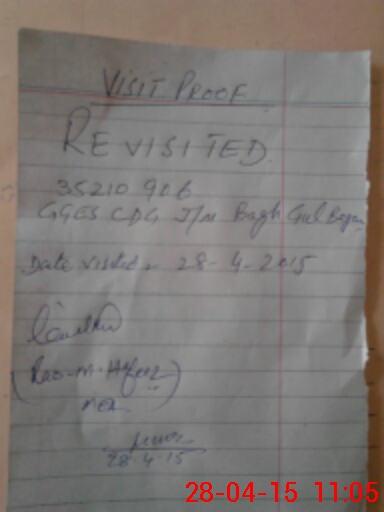 VISIT PROOF
REVISITED
35210906
GGES CDG J/M Bagh Gul Begum
Date visited - 28-4-2015
(Rao-M-Hafeez)
MEA
28-4-15
28-04-15 11:05